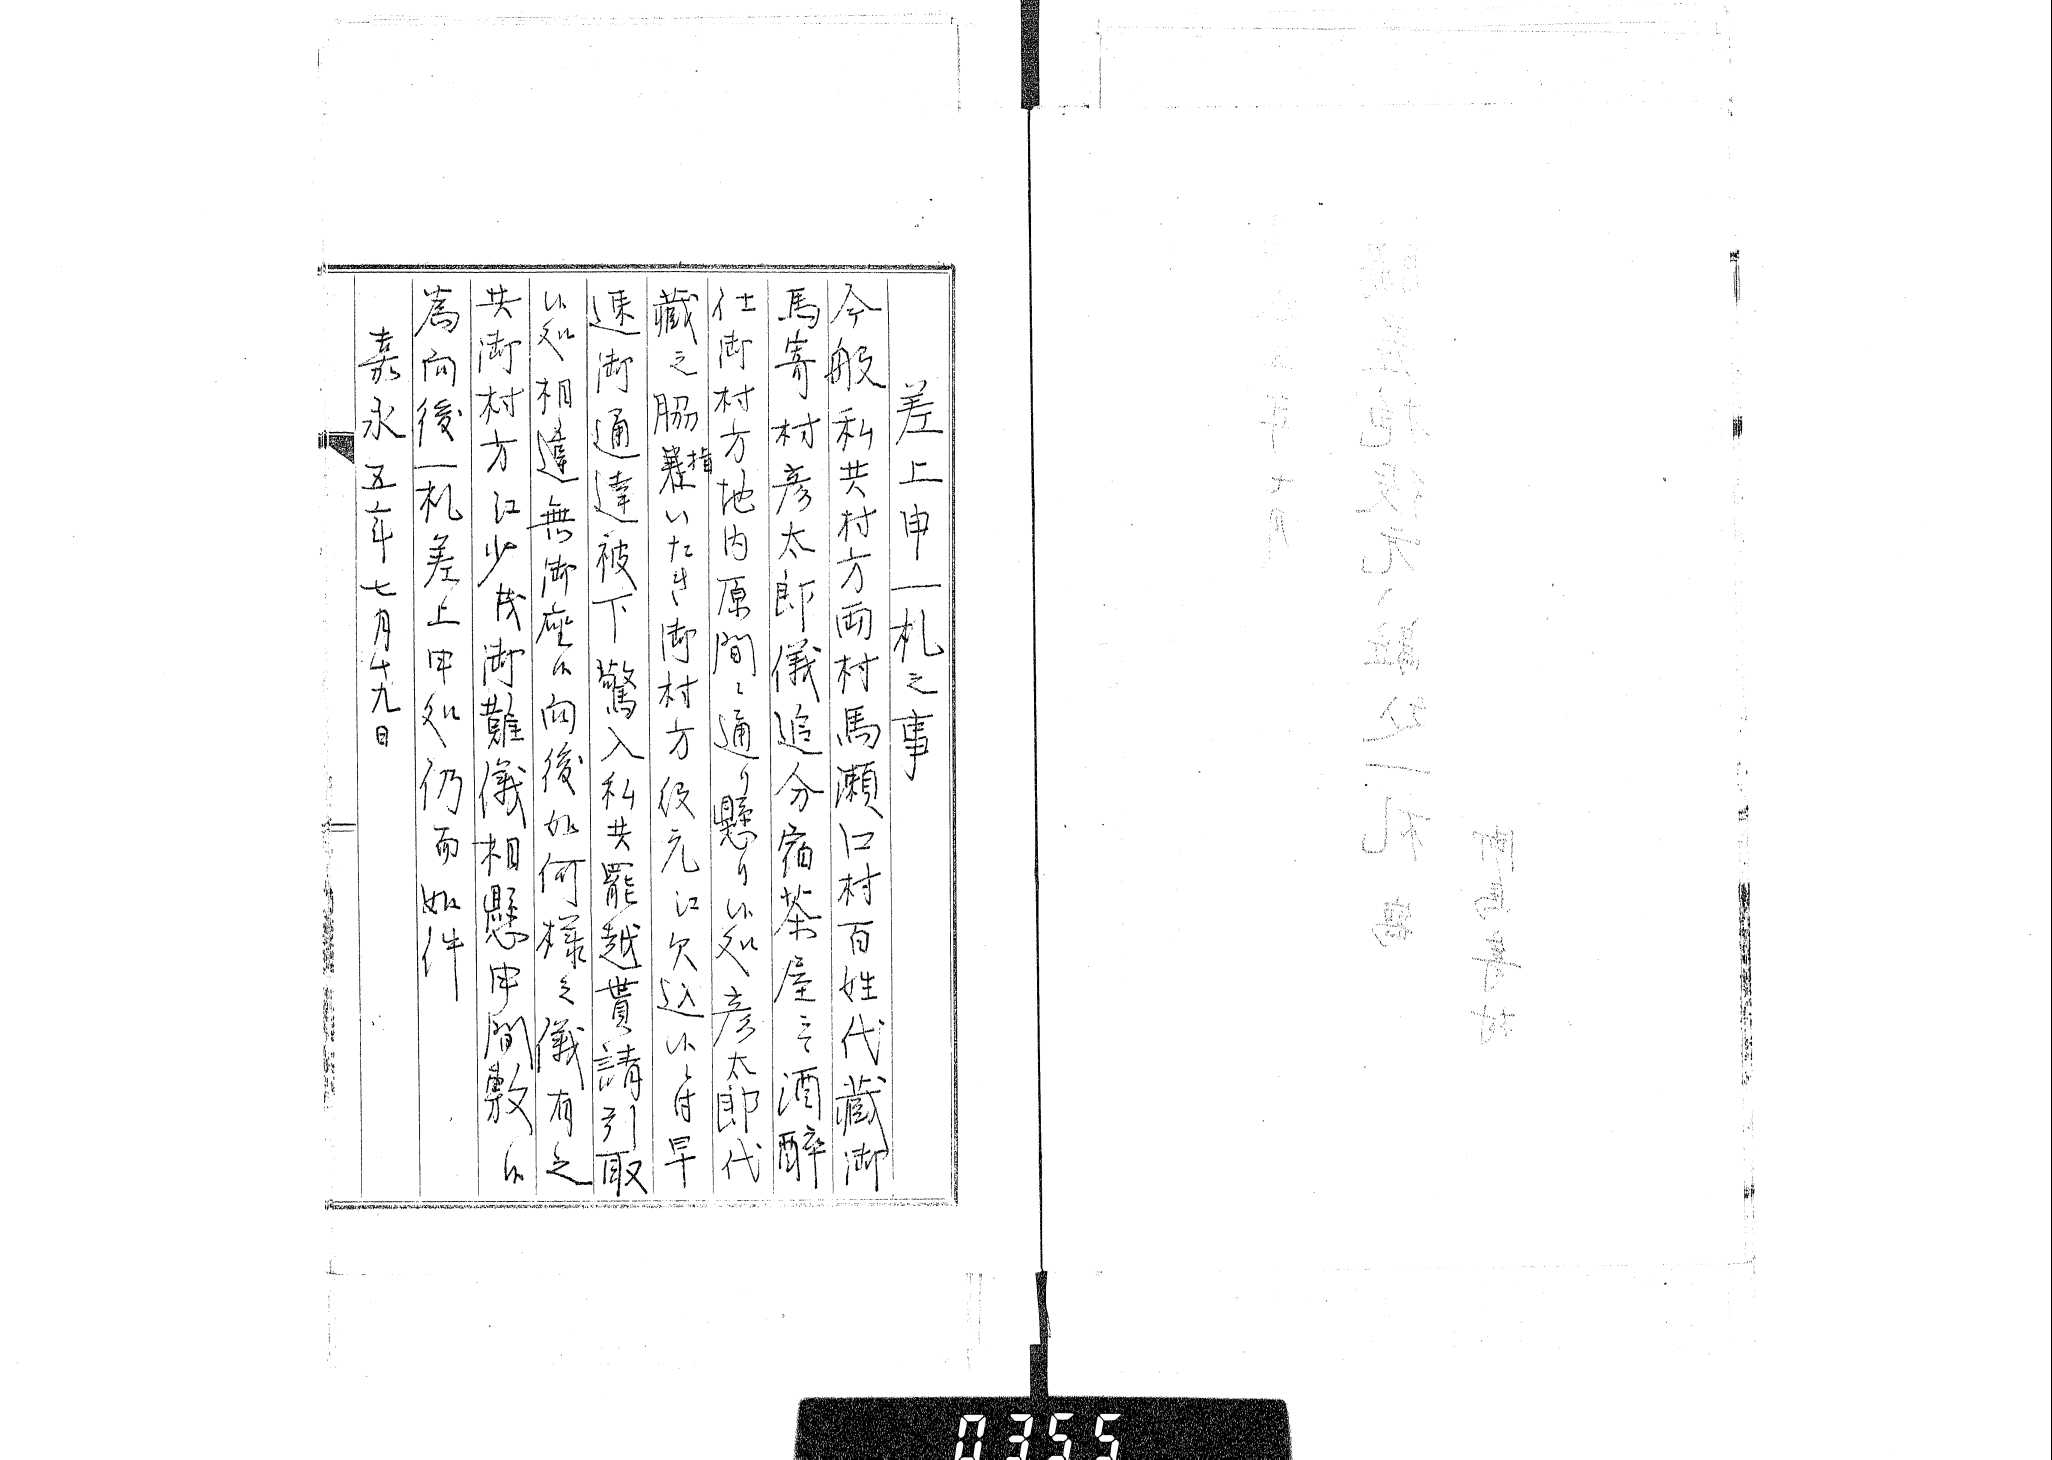 差上申一札之事
今般私共村方両村馬瀬口村百姓代蔵御
馬寄村彦太郎儀追分宿茶屋ニ而酒酔
仕御村方地内原間ニ通り懸り候処彦太郎代
蔵之脇指いたき御村方役元江欠込候ニ付早
速御通達被下驚入私共罷越貰請引取
候処相違無御座候向後如何様之儀有之
共御村方江少茂御難儀相懸申間敷候
為向後一札差上申処仍而如件
嘉永五年七月十九日
0355